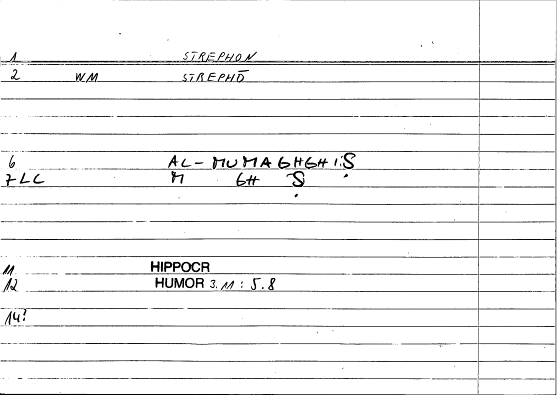 1 STREPHON
2 WM STREPHŌ
6 AL-MUMAGHGHIṢ
7 LC M GH Ṣ
11 HIPPOCR
12 HUMOR 3.11:5.8
14?